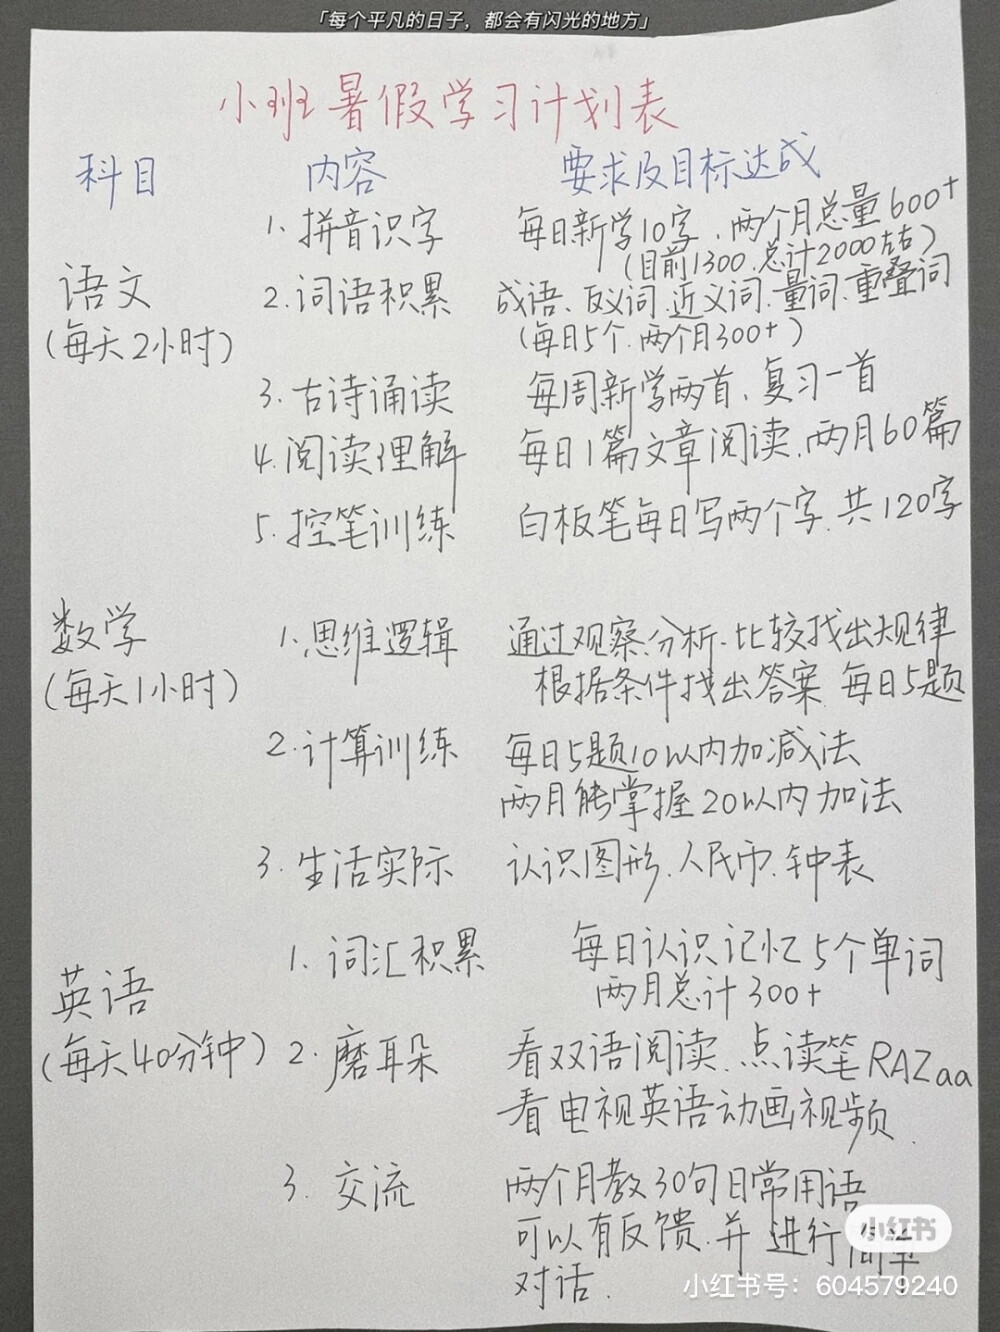 「每个平凡的日子，都会有闪光的地方」
小班暑假学习计划表
科目 内容 要求及目标达成
语文
(每天2小时)
1. 拼音识字 每日新学10字，两个月总量600+
(目前1300，总计2000左右)
2. 词语积累 成语、反义词、近义词、量词、重叠词
(每日5个，两个月300+)
3. 古诗诵读 每周新学两首、复习一首
4. 阅读理解 每日1篇文章阅读，两月60篇
5. 控笔训练 白板笔每日写两个字，共120字
数学
(每天1小时)
1. 思维逻辑 通过观察、分析、比较找出规律
根据条件找出答案 每日5题
2. 计算训练 每日5题10以内加减法
两月能掌握20以内加法
3. 生活实际 认识图形、人民币、钟表
英语
(每天40分钟)
1. 词汇积累 每日认识记忆5个单词
两月总计300+
2. 磨耳朵 看双语阅读、点读笔RAZaa
看电视英语动画视频.
3. 交流 两个月教30句日常用语
可以有反馈，并进行简单
对话.
小红书
小红书号：604579240